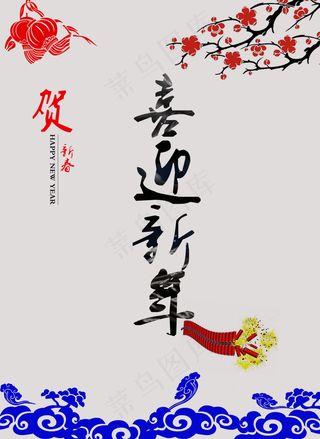 贺
新春
HAPPY NEW YEAR
喜迎新年
菜鸟图库